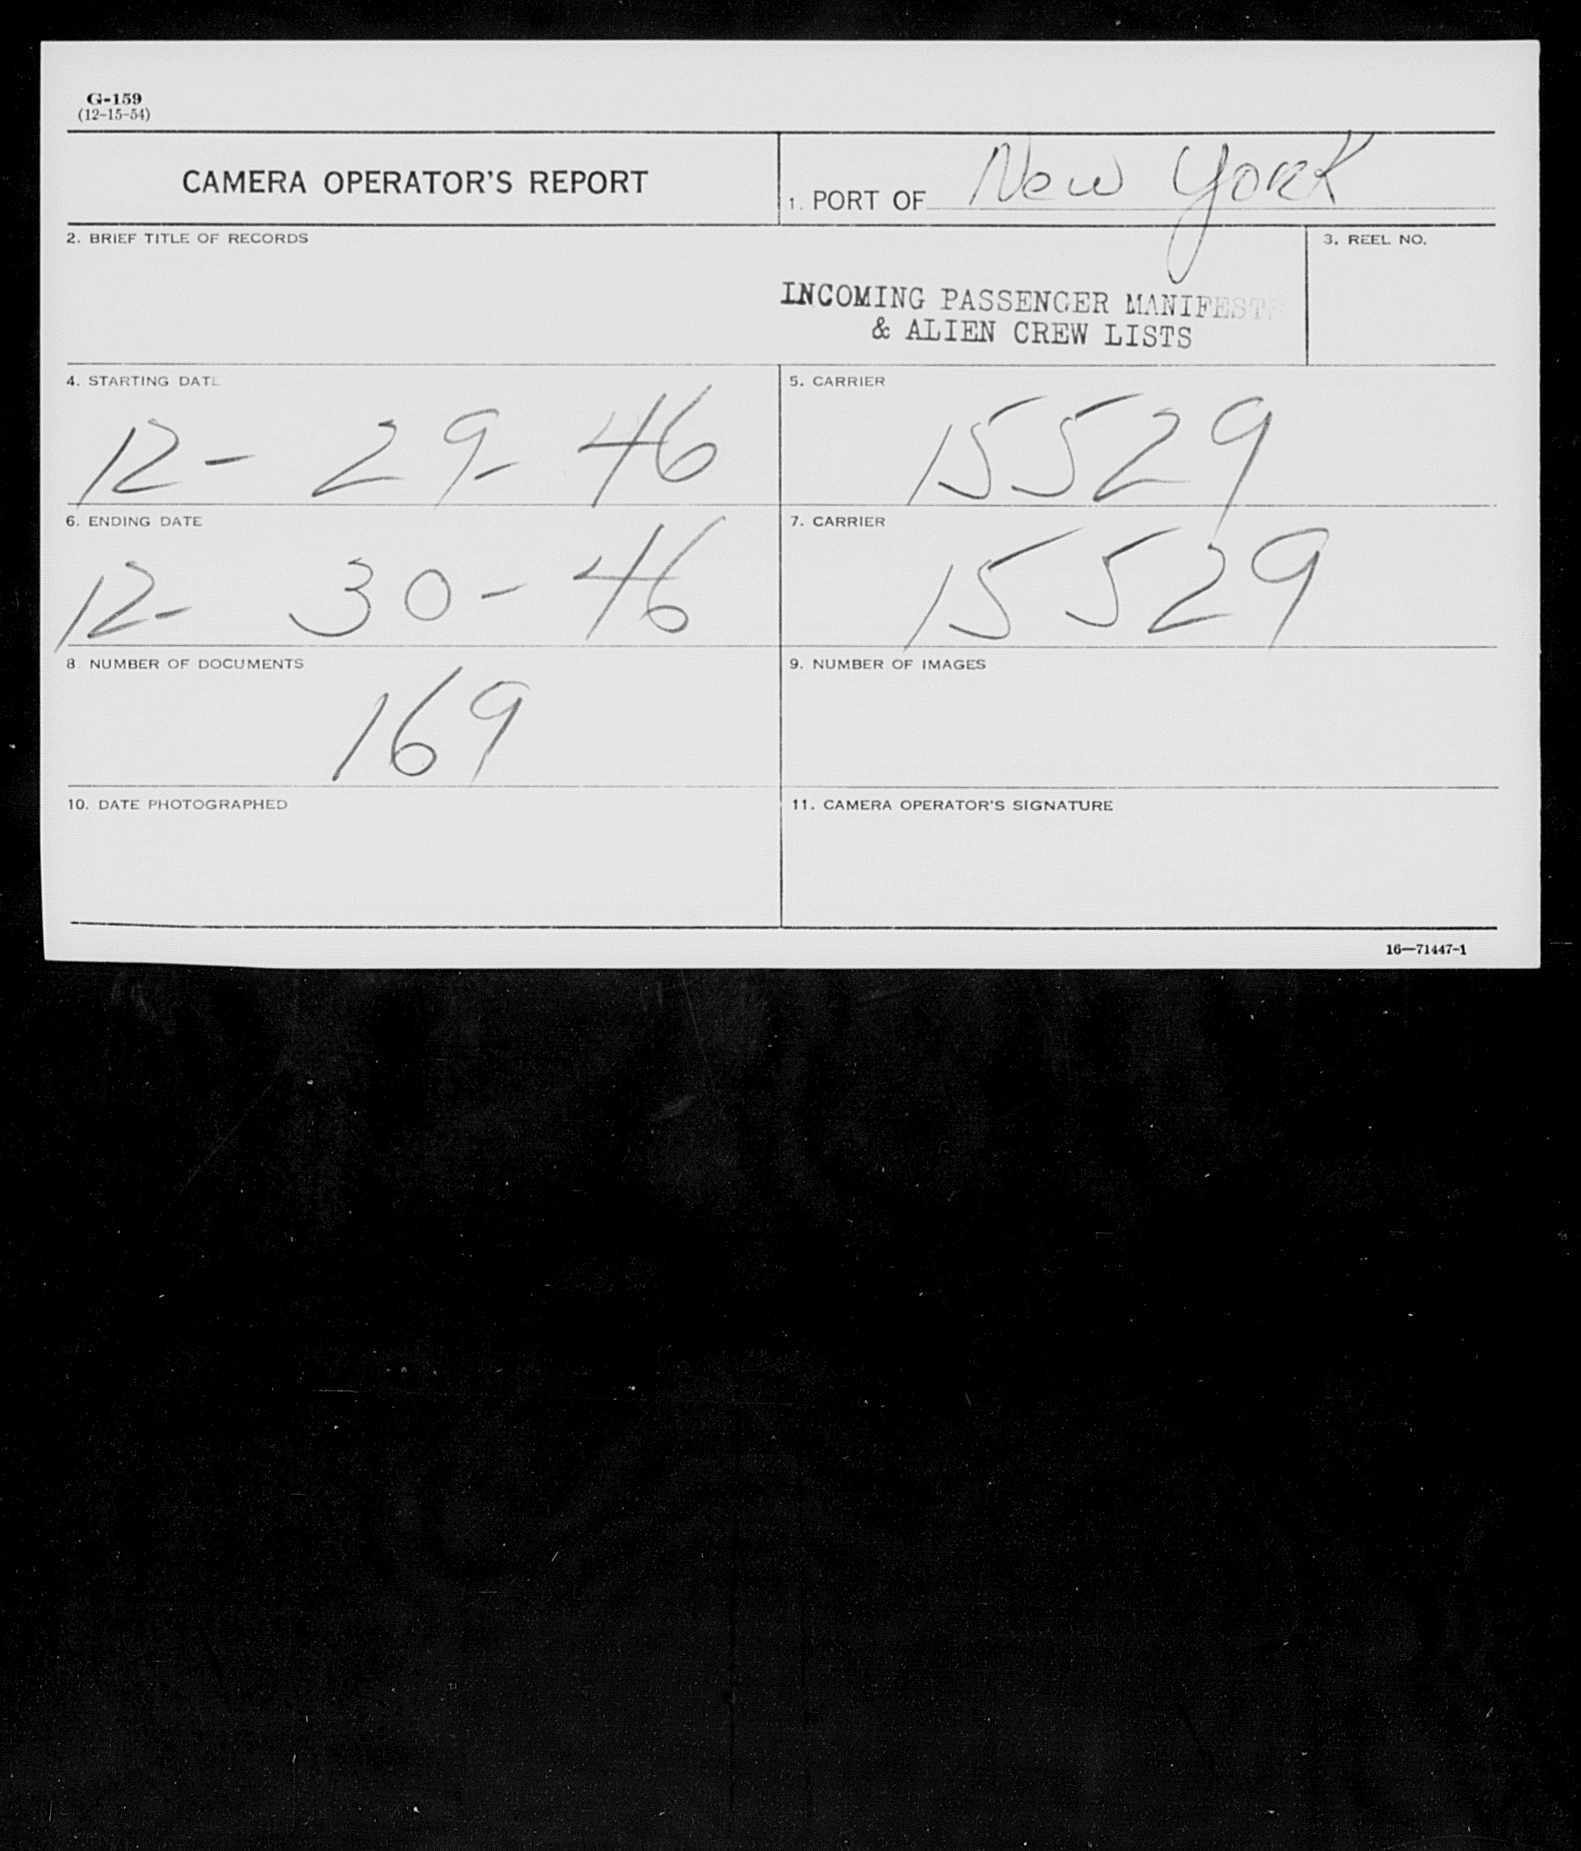 G-159
(12-15-54)
CAMERA OPERATOR'S REPORT
1. PORT OF New York
2. BRIEF TITLE OF RECORDS
3. REEL NO.
INCOMING PASSENGER MANIFESTS
& ALIEN CREW LISTS
4. STARTING DATE
12- 29- 46
5. CARRIER
15529
6. ENDING DATE
12- 30- 46
7. CARRIER
15529
8. NUMBER OF DOCUMENTS
169
9. NUMBER OF IMAGES
10. DATE PHOTOGRAPHED
11. CAMERA OPERATOR'S SIGNATURE
16—71447-1